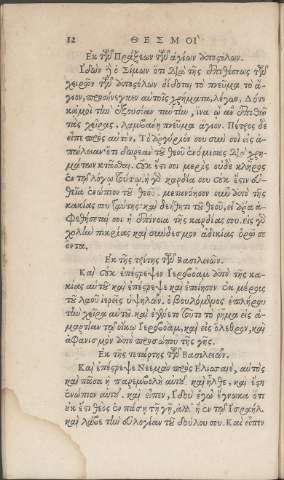 12 ΘΕΣΜΟΙ
Ἐκ τῶν Πράξεων τῶν ἁγίων ἀποστόλων.
Ἰδὼν ἢ ὁ Σίμων ὅτι διὰ τῆς ἐπιθέσεως τῶν
χειρῶν τῶν ἀποστόλων δίδοται τὸ πνεῦμα τὸ ἅ-
γιον, προσήνεγκεν αὐτοῖς χρήματα, λέγων, Δότε
κἀμοὶ τὴν ἐξουσίαν ταύτην, ἵνα ᾧ ἂν ἐπιθῶ
τὰς χεῖρας, λαμβάνῃ πνεῦμα ἅγιον. Πέτρος δὲ
εἶπε πρὸς αὐτὸν, Τὸ ἀργύριόν σου σὺν σοὶ εἴη εἰς ἀ-
πώλειαν· ὅτι δωρεὰν τοῦ θεοῦ ἐνόμισας διὰ χρη-
μάτων κτᾶσθαι. οὐκ ἔστι σοι μερὶς οὐδὲ κλῆρος
ἐν τῷ λόγῳ τούτῳ. ἡ γὸ καρδία σου οὐκ ἔστιν εὐ-
θεῖα ἐνώπιον τοῦ θεοῦ. μετανόησον οὖν ἀπὸ τῆς
κακίας σου ταύτης· καὶ δεήθητι τοῦ θεοῦ, εἰ ἄρα ἀ-
φεθήσεταί σοι ἡ ἐπίνοια τῆς καρδίας σου. εἰς γὸ
χολὴν πικρίας καὶ σύνδεσμον ἀδικίας ὁρῶ σε
ὄντα.
Ἐκ τῆς τρίτης τῶν Βασιλειῶν.
Καὶ οὐκ ἐπέστρεψεν Ἱεροβοὰμ ἀπὸ τῆς κα-
κίας αὐτοῦ καὶ ἐπέστρεψε καὶ ἐποίησεν ἐκ μέρους
τοῦ λαοῦ ἱερεῖς ὑψηλῶν. ὁ βουλόμενος ἐπλήρου
τὴν χεῖρα αὐτοῦ. καὶ ἐγένετο τοῦτο τὸ ῥῆμα εἰς ἁ-
μαρτίαν τῷ οἴκῳ Ἱεροβοὰμ, καὶ εἰς ὄλεθρον, καὶ
ἀφανισμὸν ἀπὸ προσώπου τῆς γῆς.
Ἐκ τῆς τετάρτης τῶν Βασιλειῶν.
Καὶ ἐπέστρεψε Νεεμὰν πρὸς Ἐλισσαιὲ, αὐτὸς
καὶ πᾶσα ἡ παρεμβολὴ αὐτοῦ. καὶ ἦλθε, καὶ ἔστη
ἐνώπιον αὐτοῦ. καὶ εἶπεν, Ἰδοὺ ἐγὼ ἔγνωκα ὅτι
οὐκ ἔστι θεὸς ἐν πάσῃ τῇ γῇ, ἀλλ' ἢ ἐν τῷ Ἰσραήλ.
καὶ λάβε τὴν εὐλογίαν τοῦ δούλου σου. Καὶ εἶπεν